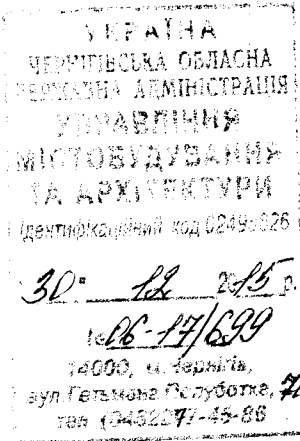 УКРАЇНА
ЧЕРНІГІВСЬКА ОБЛАСНА
ДЕРЖАВНА АДМІНІСТРАЦІЯ
УПРАВЛІННЯ
МІСТОБУДУВАННЯ
ТА АРХІТЕКТУРИ
Ідентифікаційний код
30 12 2015 р.
06-17/699
14000, м. Чернігів,
вул. Гетьмана Полуботка,
тел.